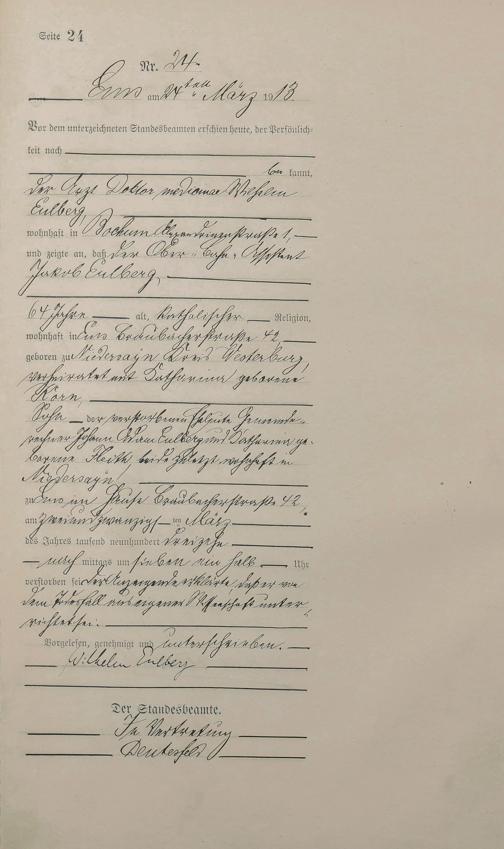 Seite 24
Nr. 24.
Ems am 24ten März 1913
Vor dem unterzeichneten Standesbeamten erschien heute, der Persönlich-
keit nach
be kannt,
der Arzt Doktor medicinae Wilhelm
Eulberg,
wohnhaft in Bochum Alexandrinenstraße 1,
und zeigte an, daß der Ober-Bahn-Assistent
Jakob Eulberg,
64 Jahre alt, katholischer Religion,
wohnhaft in Ems Braubacherstraße 42,
geboren zu Niedersayn Kreis Westerburg,
verheiratet mit Katharina geborene
Korn,
Sohn der verstorbenen Eheleute Gemeinde-
rechner Johann Adam Eulberg und Katharina ge-
borene beide zuletzt wohnhaft in
Niedersayn,
zu Ems im Hause Braubacherstraße 42,
am zweiundzwanzigsten März
des Jahres tausend neunhundert dreizehn
nach mittags um sieben ein halb Uhr
verstorben sei. Der Anzeigende erklärte, daß er von
dem Todesfall aus eigener Wissenschaft unter-
richtet sei.
Vorgelesen, genehmigt und unterschrieben.
Wilhelm Eulberg
Der Standesbeamte.
In Vertretung